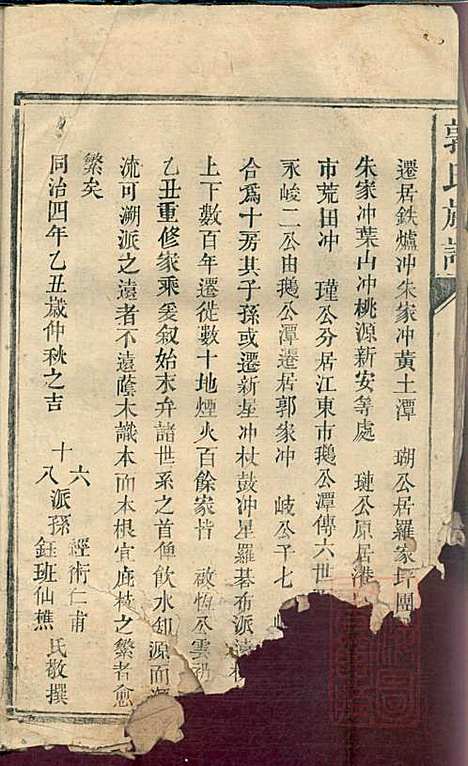 郭氏族譜
遷居鉄爐冲朱家冲黃土潭　瑚公居羅家坪團
朱家冲葉山冲桃源新安等處　璉公原居港
市荒田冲　瑾公分居江東市鵝公潭傳六世
永峻二公由鵝公潭遷居郭家冲　岐公子七
合爲十房其子孫或遷新屋冲杖鼓冲星羅碁布派遠
上下數百年遷徙數十地煙火百餘家皆　啟恆公雲礽
乙丑重修家乘爰叙始末弁諸世系之首俾飲水知源而
流可溯派之遠者不遠蔭木識本而木根宜庇枝之繁者愈
繁矣
同治四年乙丑歲仲秋之吉
十六
十八派孫
經術仁甫
鈺班仙樵
氏敬撰